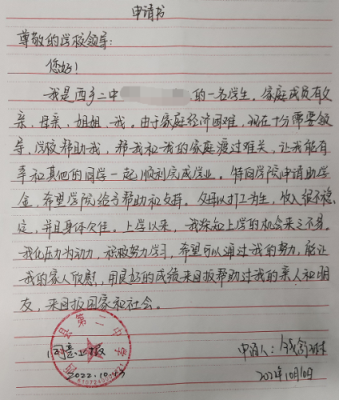 申请书
尊敬的学校领导:
您好!
我是西乡二中 的一名学生。家庭成员有父
亲、母亲、姐姐、我。由于家庭经济困难,现在十分需要领
导,学校帮助我,帮我和我的家庭渡过难关,让我能有
幸和其他的同学一起,顺利完成学业。特向学院申请助学
金,希望学院给予帮助和支持。父母以打工为生,收入很不稳
定,并且身体欠佳。上学以来,我深知上学的机会来之不易。
我化压力为动力,积极努力学习,希望可以通过我的努力,能让
我的家人欣慰,用良好的成绩来回报帮助过我的亲人和朋
友,来回报国家和社会。
县第二中学
同意
2022.10.
申请人:
2022年10月10日